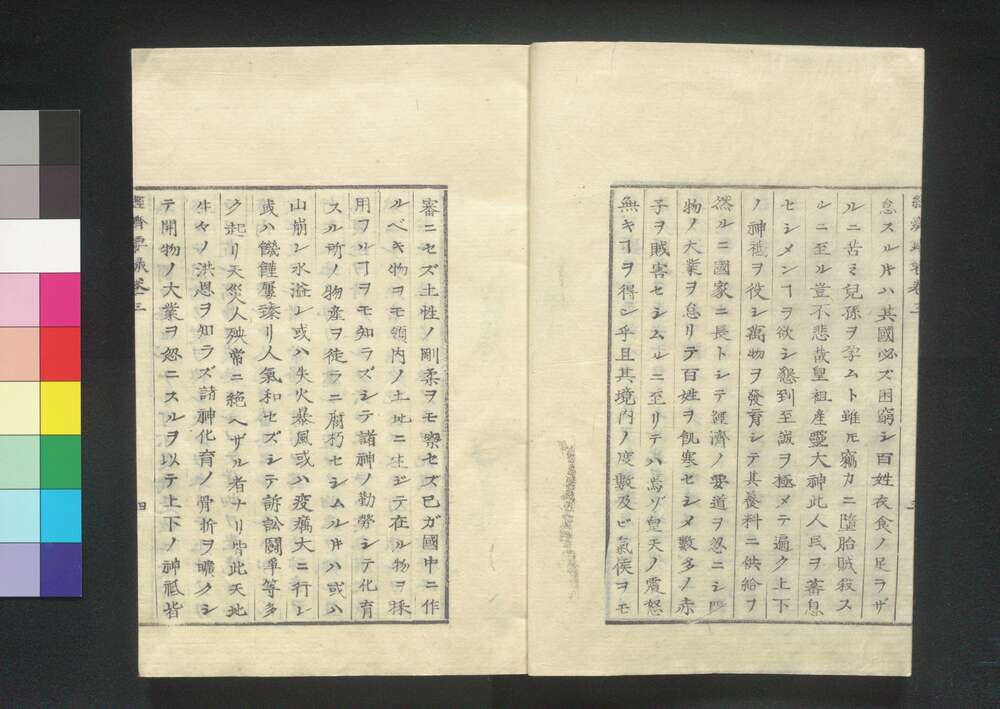 怠スル片ハ其國必ズ困窮シ百姓衣食ノ足ラザ
ルニ苦ミ兒孫ヲ孕ムト雖𪜈竊カニ墮胎賊殺ス
ルニ至ル豈不悲哉皇祖産靈大神此人民ヲ蕃息
セシメンヿヲ欲シ懇到至誠ヲ極メテ遍ク上下
ノ神祗ヲ役シ萬物ヲ發育シテ其養料ニ供給ヲ
然ルニ國家ニ長トシテ經濟ノ要道ヲ忽ニシ開
物ノ大業ヲ怠リテ百姓ヲ飢寒セシメ數多ノ赤
子ヲ賊害セシムルニ至リテハ焉ゾ皇天ノ震怒
無キヿヲ得ン乎且其境内ノ度數及ビ氣候ヲモ
三
審ニセズ土性ノ剛柔ヲモ察セズ己ガ國中ニ作
ルベキ物ヲモ領内ノ土地ニ生ジテ在ル物ヲ採
用フルヿヲモ知ラズシテ諸神ノ勤勞シテ化育
スル所ノ物産ヲ徒ラニ腐朽セシムル片ハ或ハ
山崩レ水溢レ或ハ失火暴風或ハ疫癘大ニ行レ
或ハ饑饉屢臻リ人氣和セズシテ訴訟鬪爭等多
ク起リ天災人殃常ニ絶ヘザル者ナリ皆此天地
生々ノ洪恩ヲ知ラズ諸神化育ノ骨折ヲ曠クシ
テ開物ノ大業ヲ忽ニスルヲ以テ上下ノ神祗皆
經濟要録卷三
四